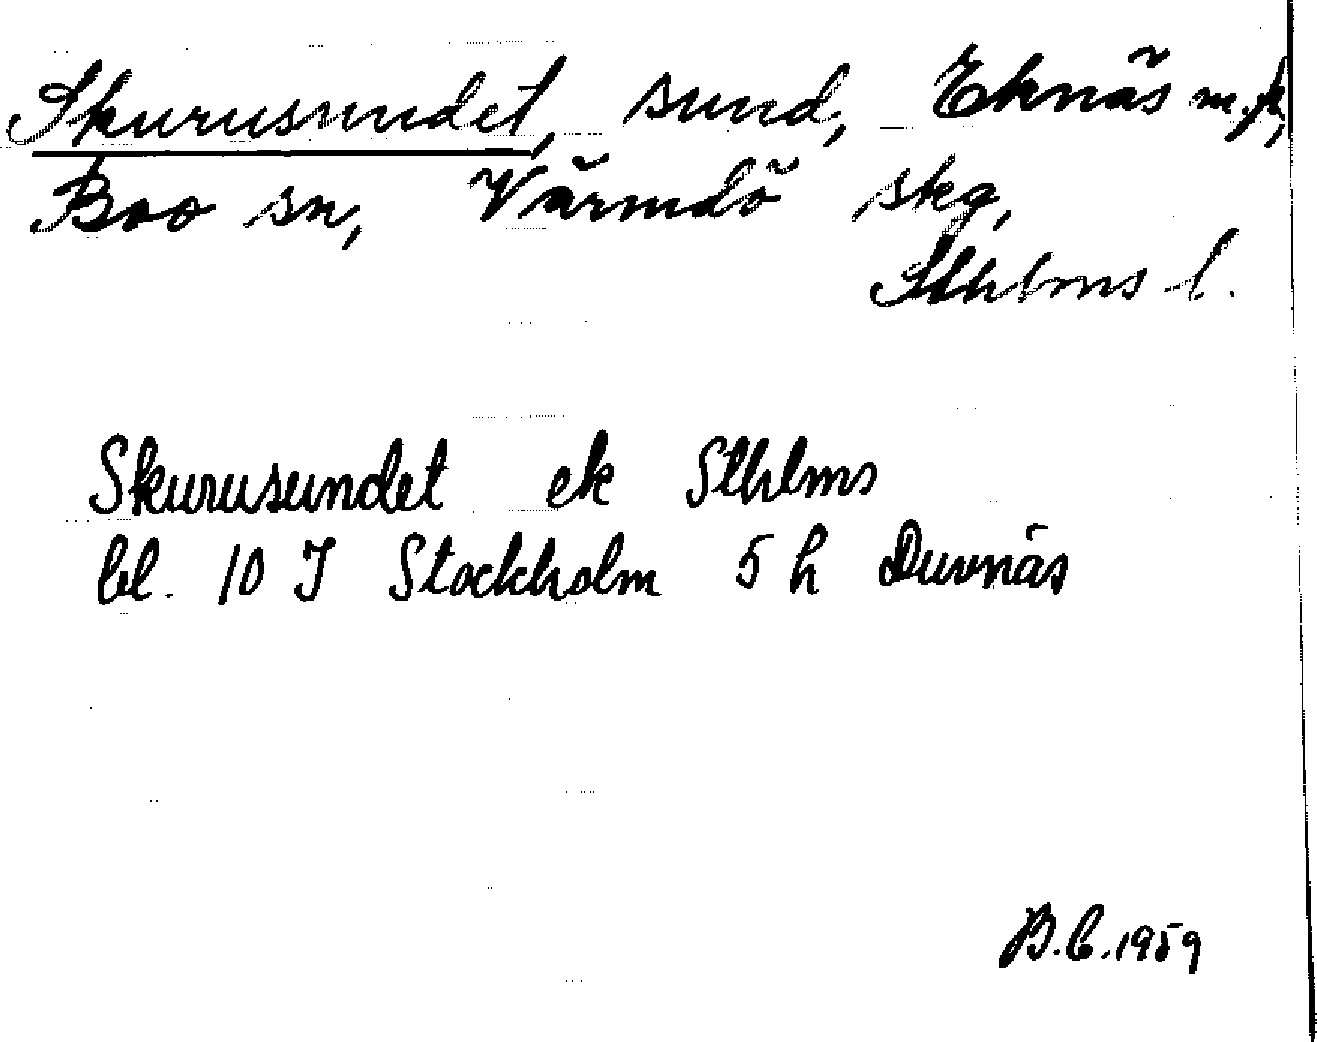 Skurusundet, sund, Eknäs m.fl,
Boo sn, Värmdö skg,
Sthlms l.
Skurusundet ek Sthlms
bl. 10 I Stockholm 5 h Duvnäs
B.C. 1959